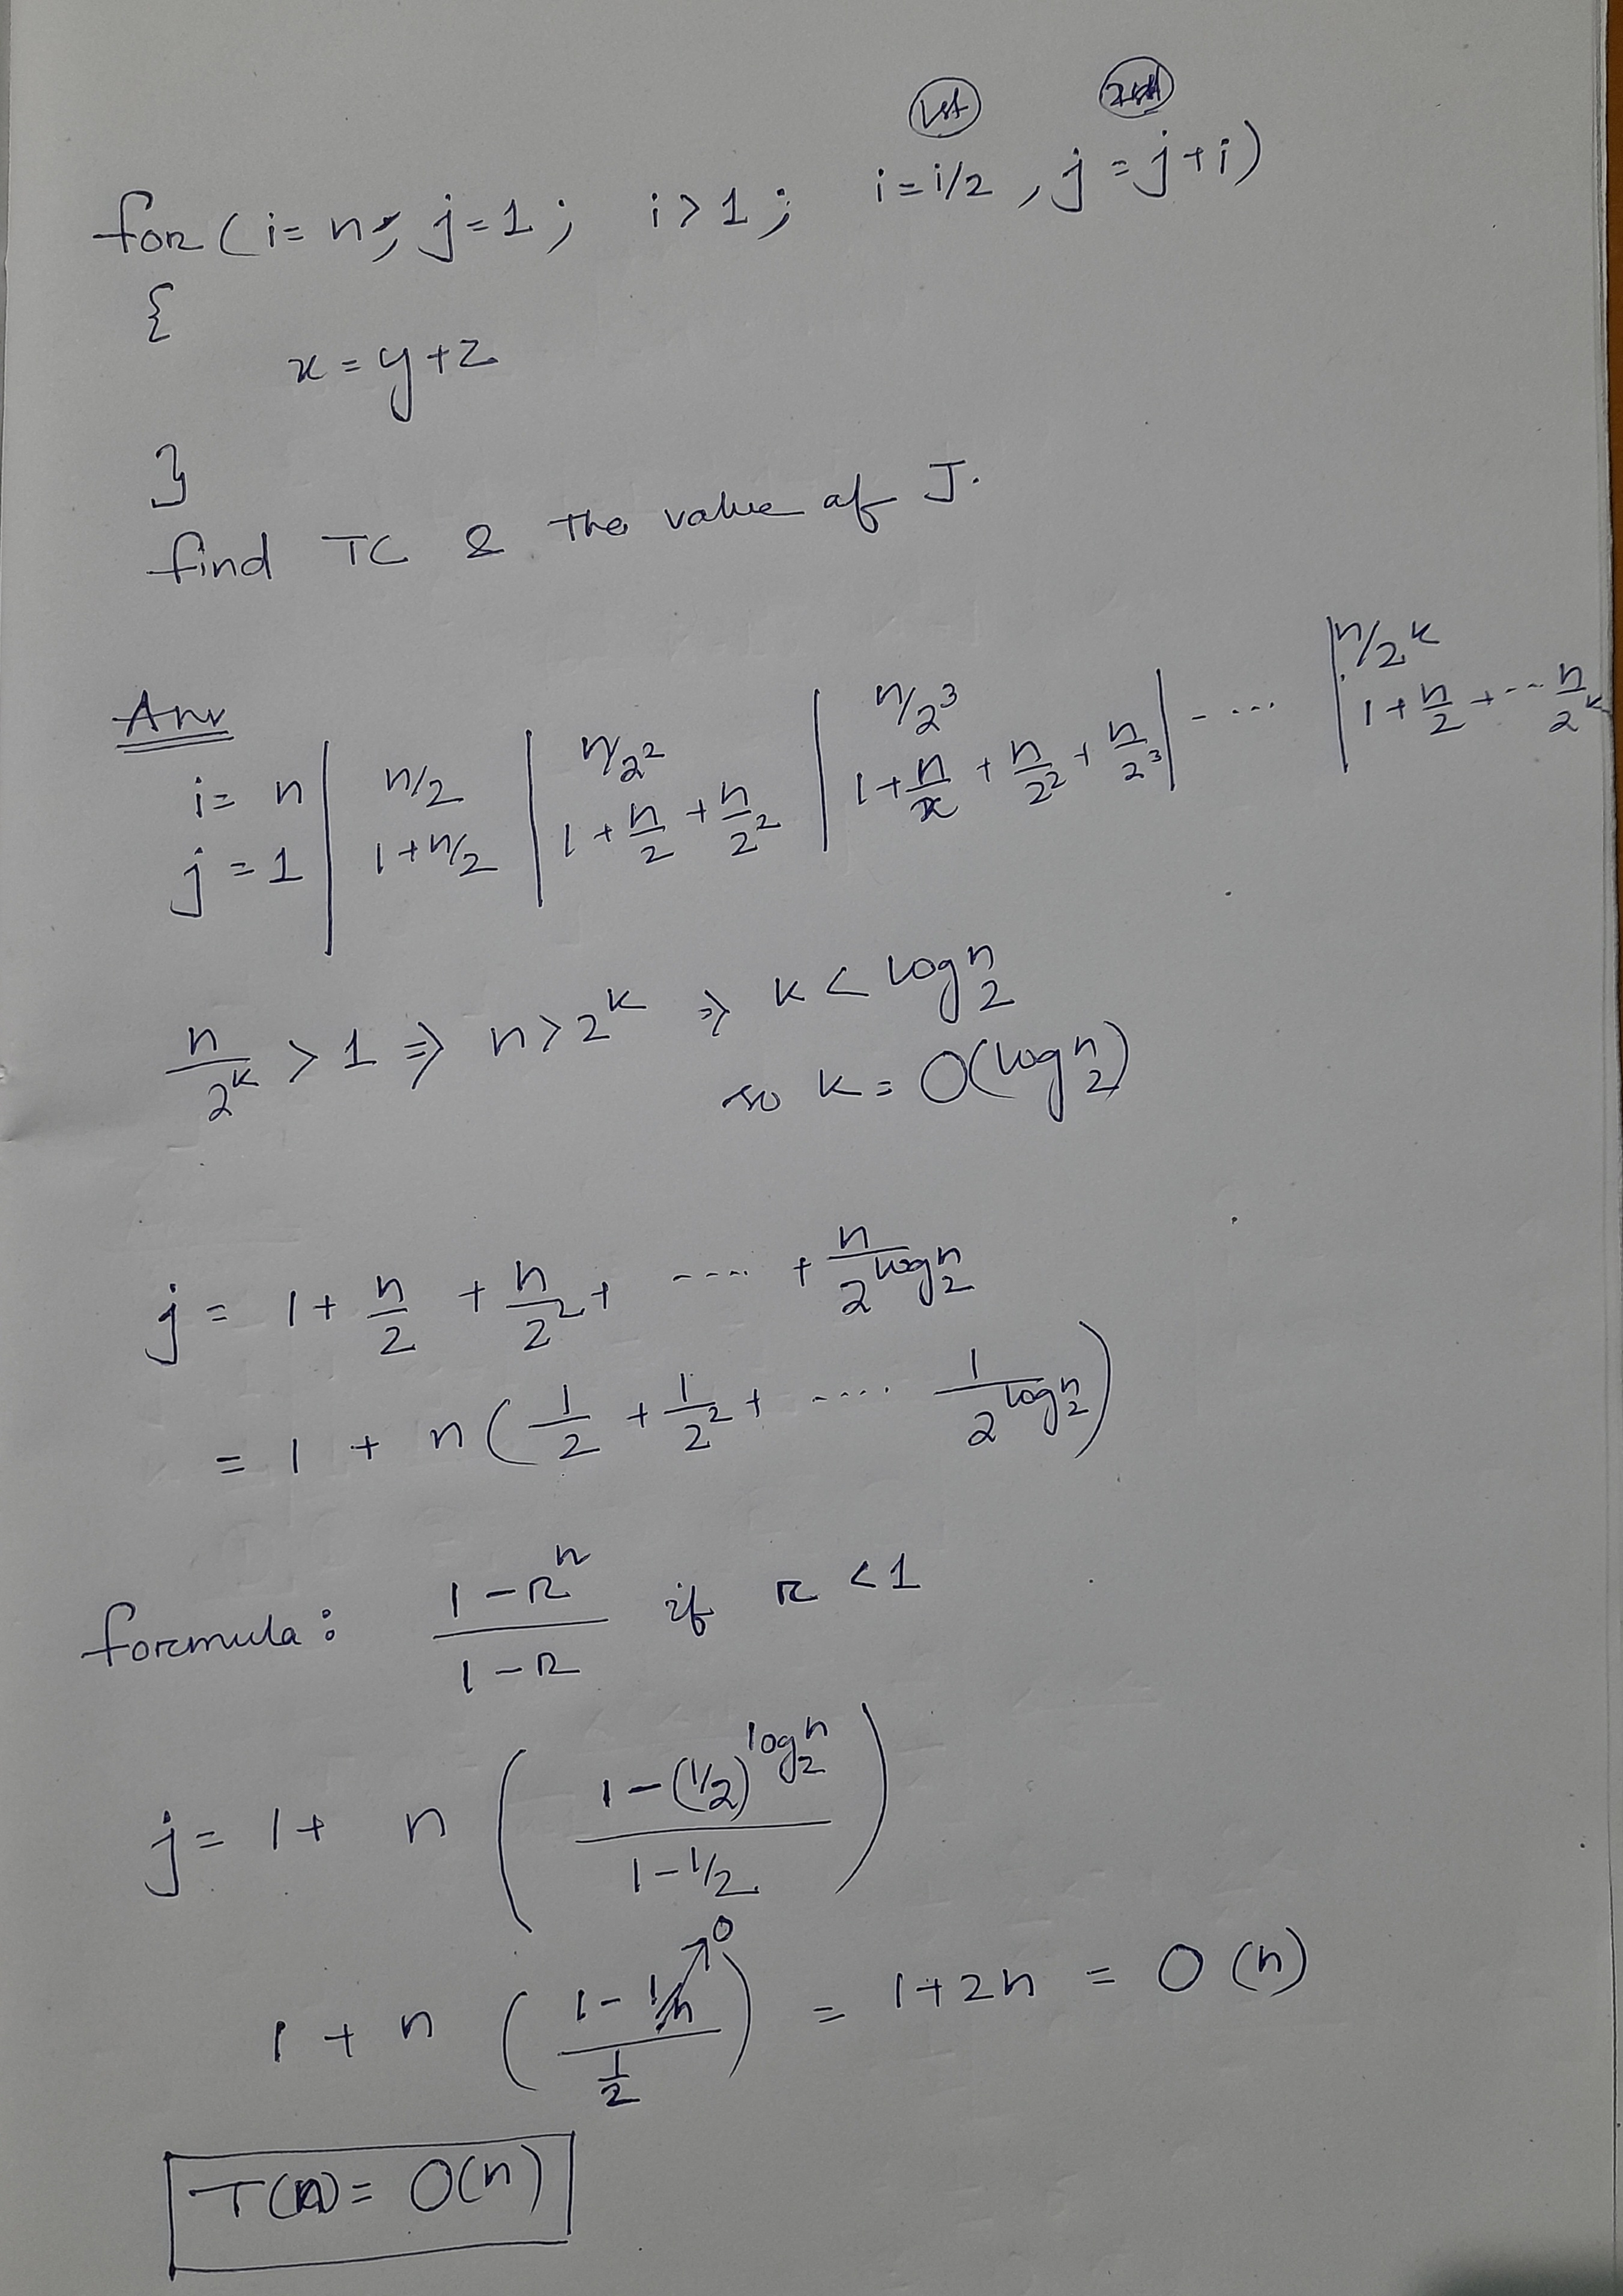 1st 2nd
for (i= n, j=1; i>1; i=i/2, j=j+i)
{
x=y+z
}
find TC & the value of J.
Ans
i= n | n/2 | n/2² | n/2³ | ---- | n/2^k
j=1 | 1+n/2 | 1+n/2+n/2² | 1+n/2+n/2²+n/2³ | ---- | 1+n/2+---n/2^k
n/2^k > 1 ⇒ n>2^k ⇒ k < log₂n
so k= O(log₂n)
j = 1+ n/2 + n/2² + ---- + n/2^log₂n
= 1 + n(1/2 + 1/2² + ---- 1/2^log₂n)
formula: (1-r^n)/(1-r) if r <1
j= 1+ n((1-(1/2)^log₂n)/(1-1/2))
1 + n((1-1/n→0)/(1/2)) = 1+2n = O(n)
T(n)= O(n)